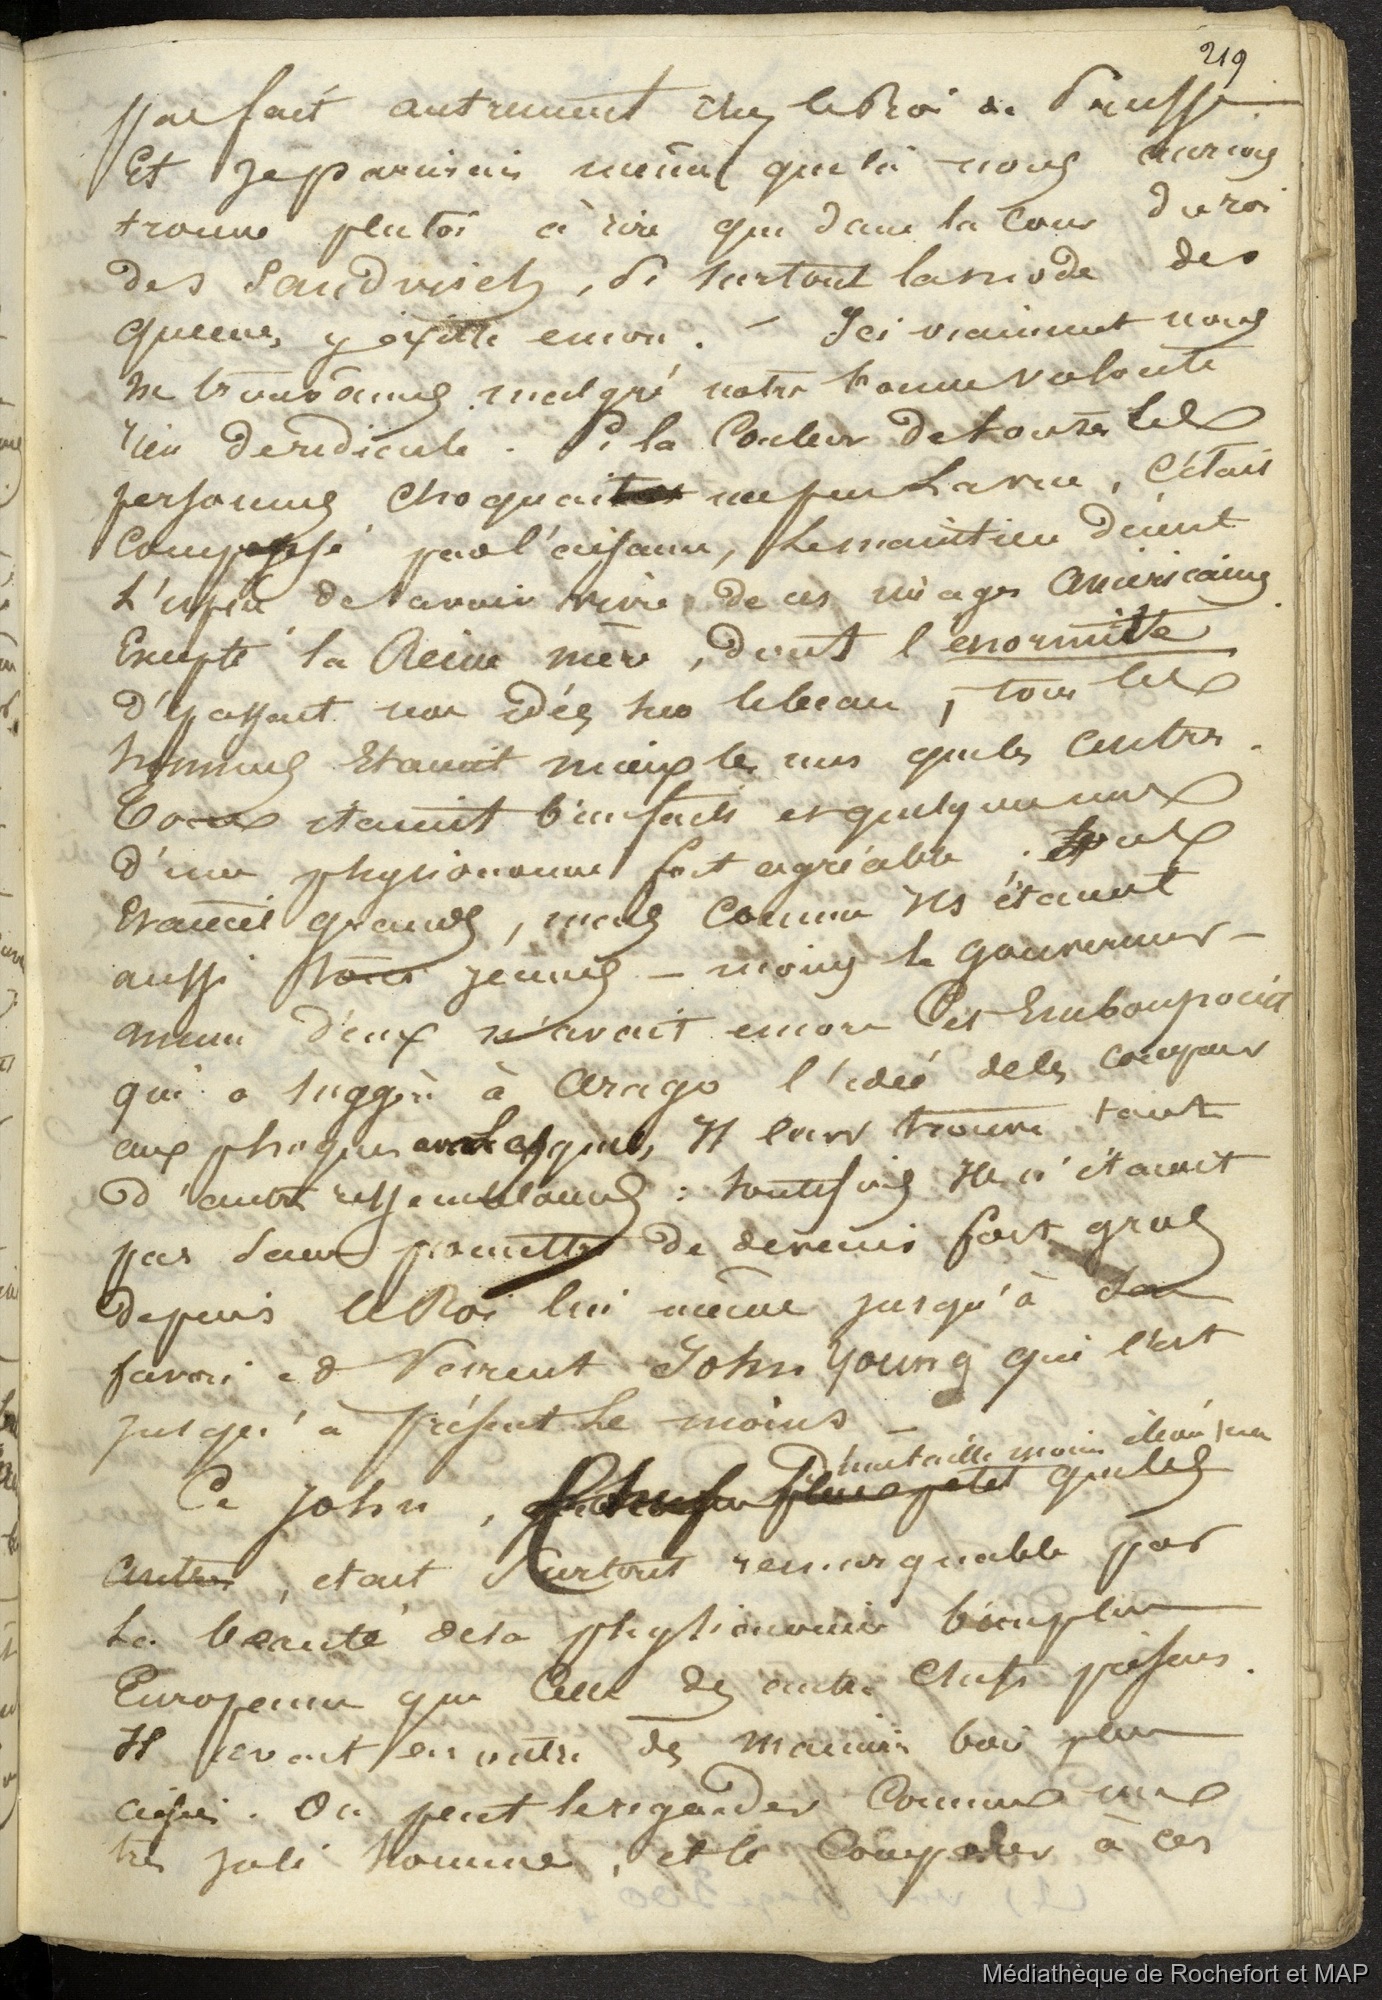 219
pas fait autrement chez le Roi de Prusse
Et je parierais même que là nous aurions
trouvé plutôt à rire que dans la Cour du roi
des Sandwich, Si surtout la mode des
queues y éxiste encore. – Ici vraiment nous
ne trouvâmes malgré notre bonne volonté
rien de ridicule. Si la Couleur de toutes les
personnes choquait un peu la vue, C'était
Compensé par l'aisance, le maintien décent
L'usage de savoir vivre de ces
Excepté la Reine mère, dont l'enormité
d'épassait nos idées sur le beau, tous les
hommes Etaient mieux les uns que les autres.
Tous étaient bien faits et quelques uns
d'une physionomie fort agréable. Tous
Etaient grands, mais Comme ils étaient
aussi tous jeunes – moins le gouverneur –
aucun d'eux n'avait encore Cet Embonpoint
qui a suggéré à Arago l'idée de les comparer
aux phoques avec lesquels il leur trouve tant
d'autres ressemblances : toutefois ils n'étaient
pas sans promettre de devenir fort gras
depuis le Roi lui même jusqu'à son
favori et Parent John Young qui l'est
jusqu'à présent le moins –
D'une taille moins élevée que
Ce John, un peu plus petit que les
autres, etait Surtout remarquable par
la béauté de sa physionomie bien plus
Européenne que Celle des autres Chefs présens.
Il avait en outre des manières bien plus
aisées. On peut le regarder Comme un
très joli homme, et le Comparer à ces
Médiathèque de Rochefort et MAP